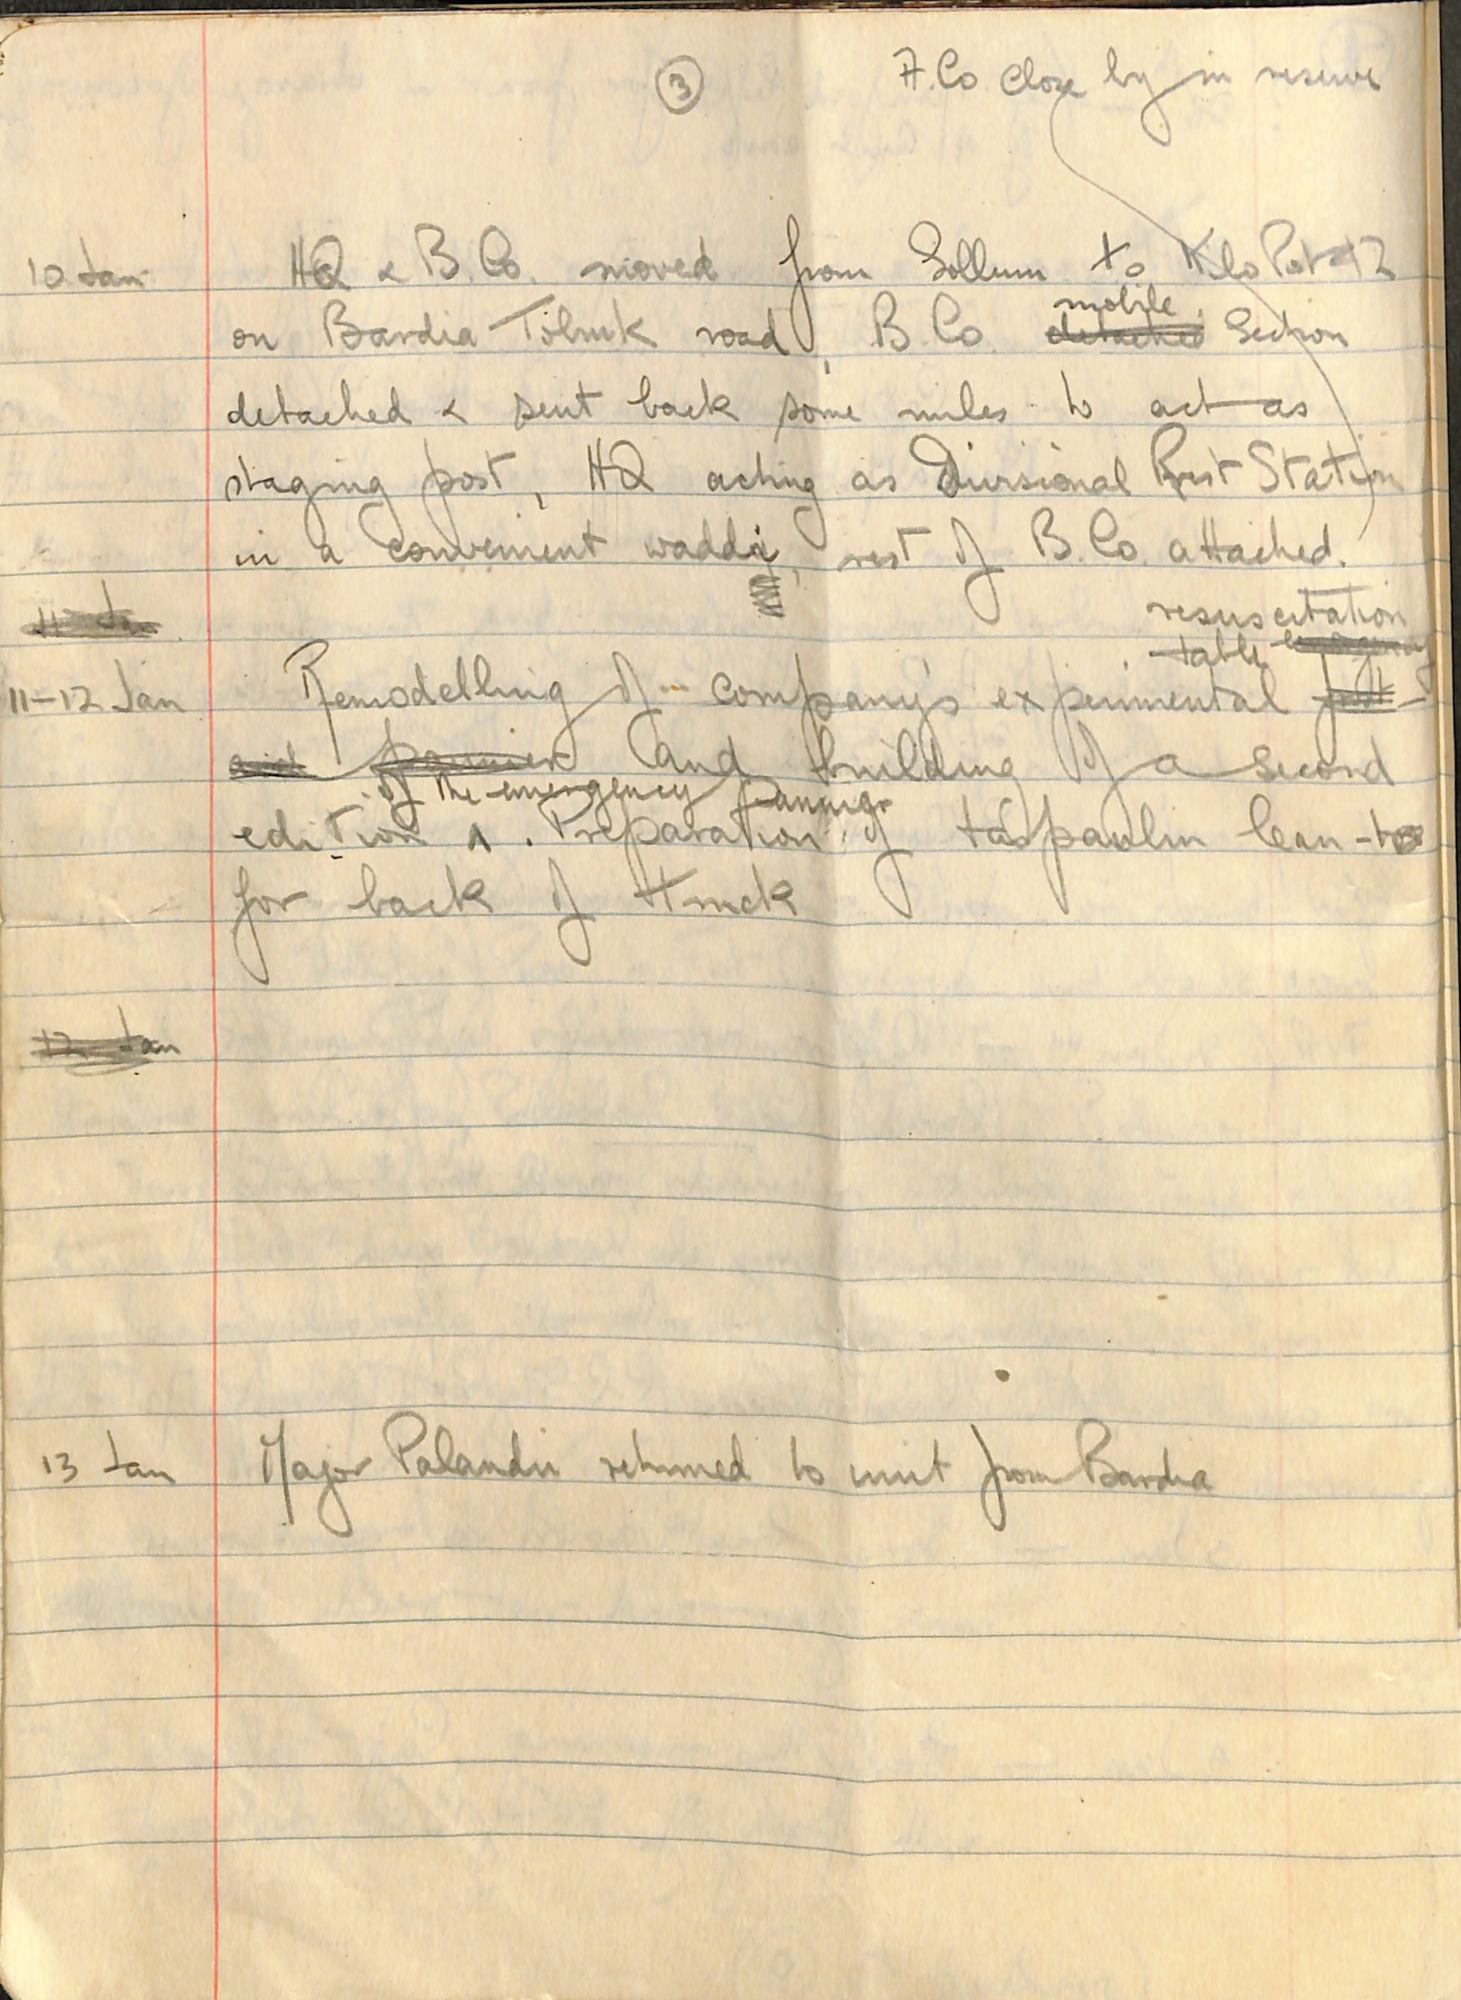 3
A.Co close by in reserve
10 Jan HQ & B.Co. moved from Sollum to Kilo Post 42
mobile
on Bardia Tobruk road, B.Co. detached Section
detached & sent back some miles to act as
staging post, HQ acting as Divisional Rest Station
in a convenient waddi, rest of B.Co. attached.
11 Jan
resuscitation
table emergency
11-12 Jan Remodelling of company's experimental first
aid pannier and building of a second
of the emergency pannier
edition ^. Preparation of tarpaulin lean-to
for back of truck
12 Jan
13 Jan Major Palandri returned to unit from Bardia